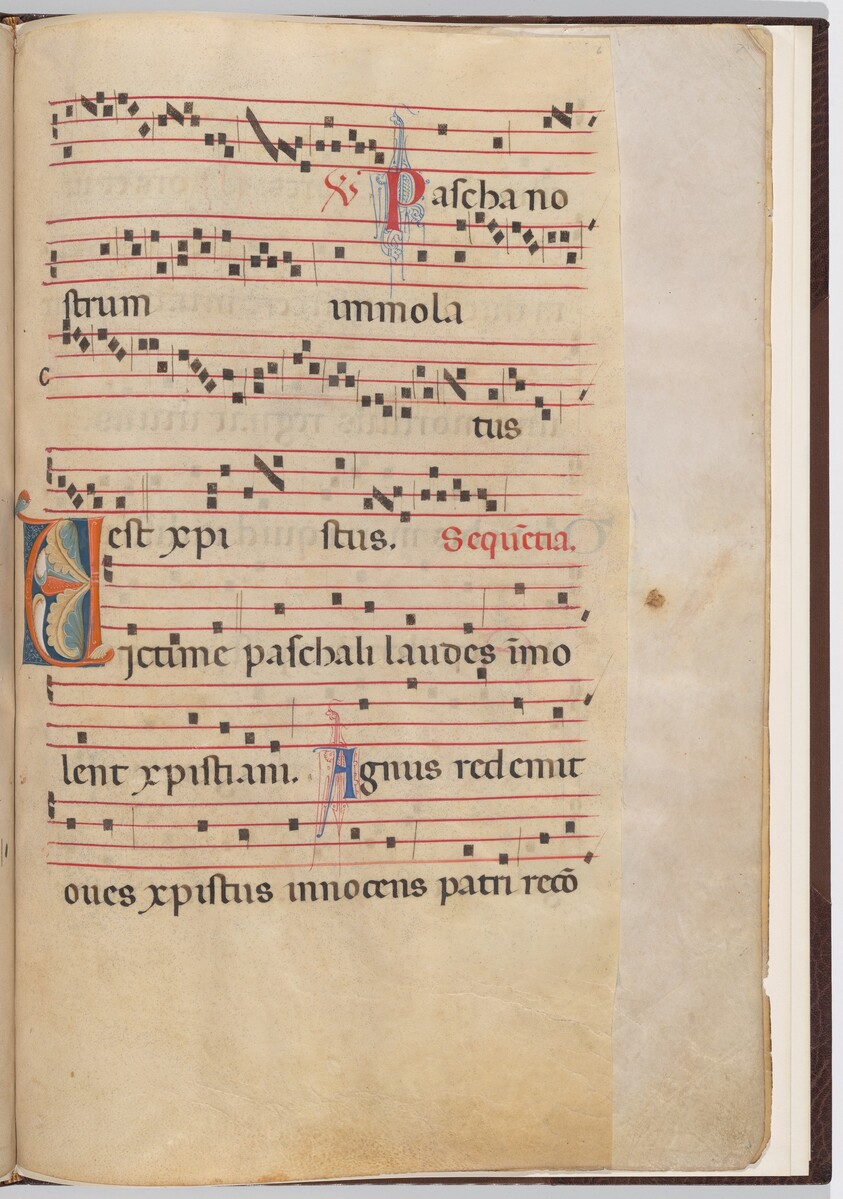 ℣ Pascha no
strum immola
tus
est xpi stus. Sequẽtia.
Uictime paschali laudes ĩmo
lent xpistiani. Agnus redemit
oues xpistus innocens patri recõ